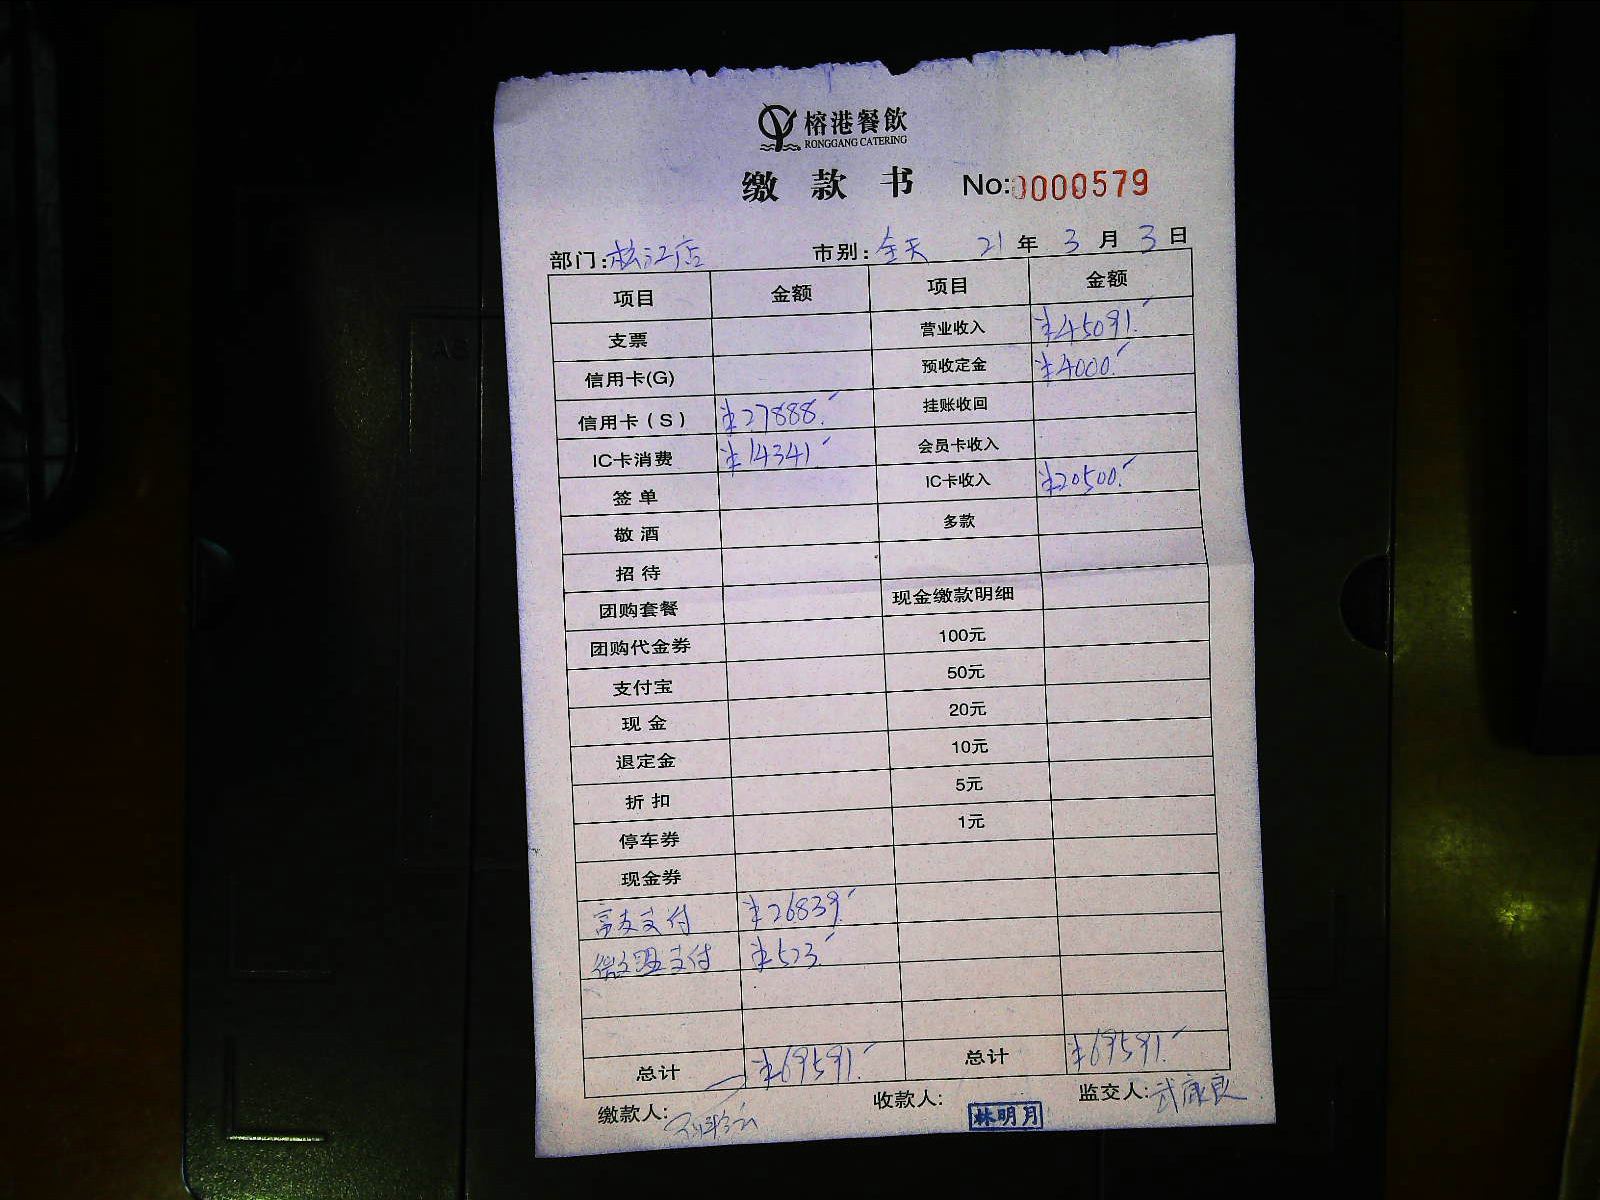 榕港餐飲
RONGGANG CATERING
缴款书 No:0000579
部门:松江店 市别:全天 21年3月3日
项目 金额 项目 金额
支票 营业收入 ¥45091.
信用卡(G) 预收定金 ¥4000.
信用卡(S) ¥27888. 挂账收回
IC卡消费 ¥14341. 会员卡收入
签单 IC卡收入 ¥20500.
敬酒 多款
招待
团购套餐 现金缴款明细
团购代金券 100元
支付宝 50元
现金 20元
退定金 10元
折扣 5元
停车券 1元
现金券
支付 ¥26839.
微盟支付 ¥523.
总计 ¥69591. 总计 ¥69591.
缴款人: 收款人: 林明月 监交人:武康良